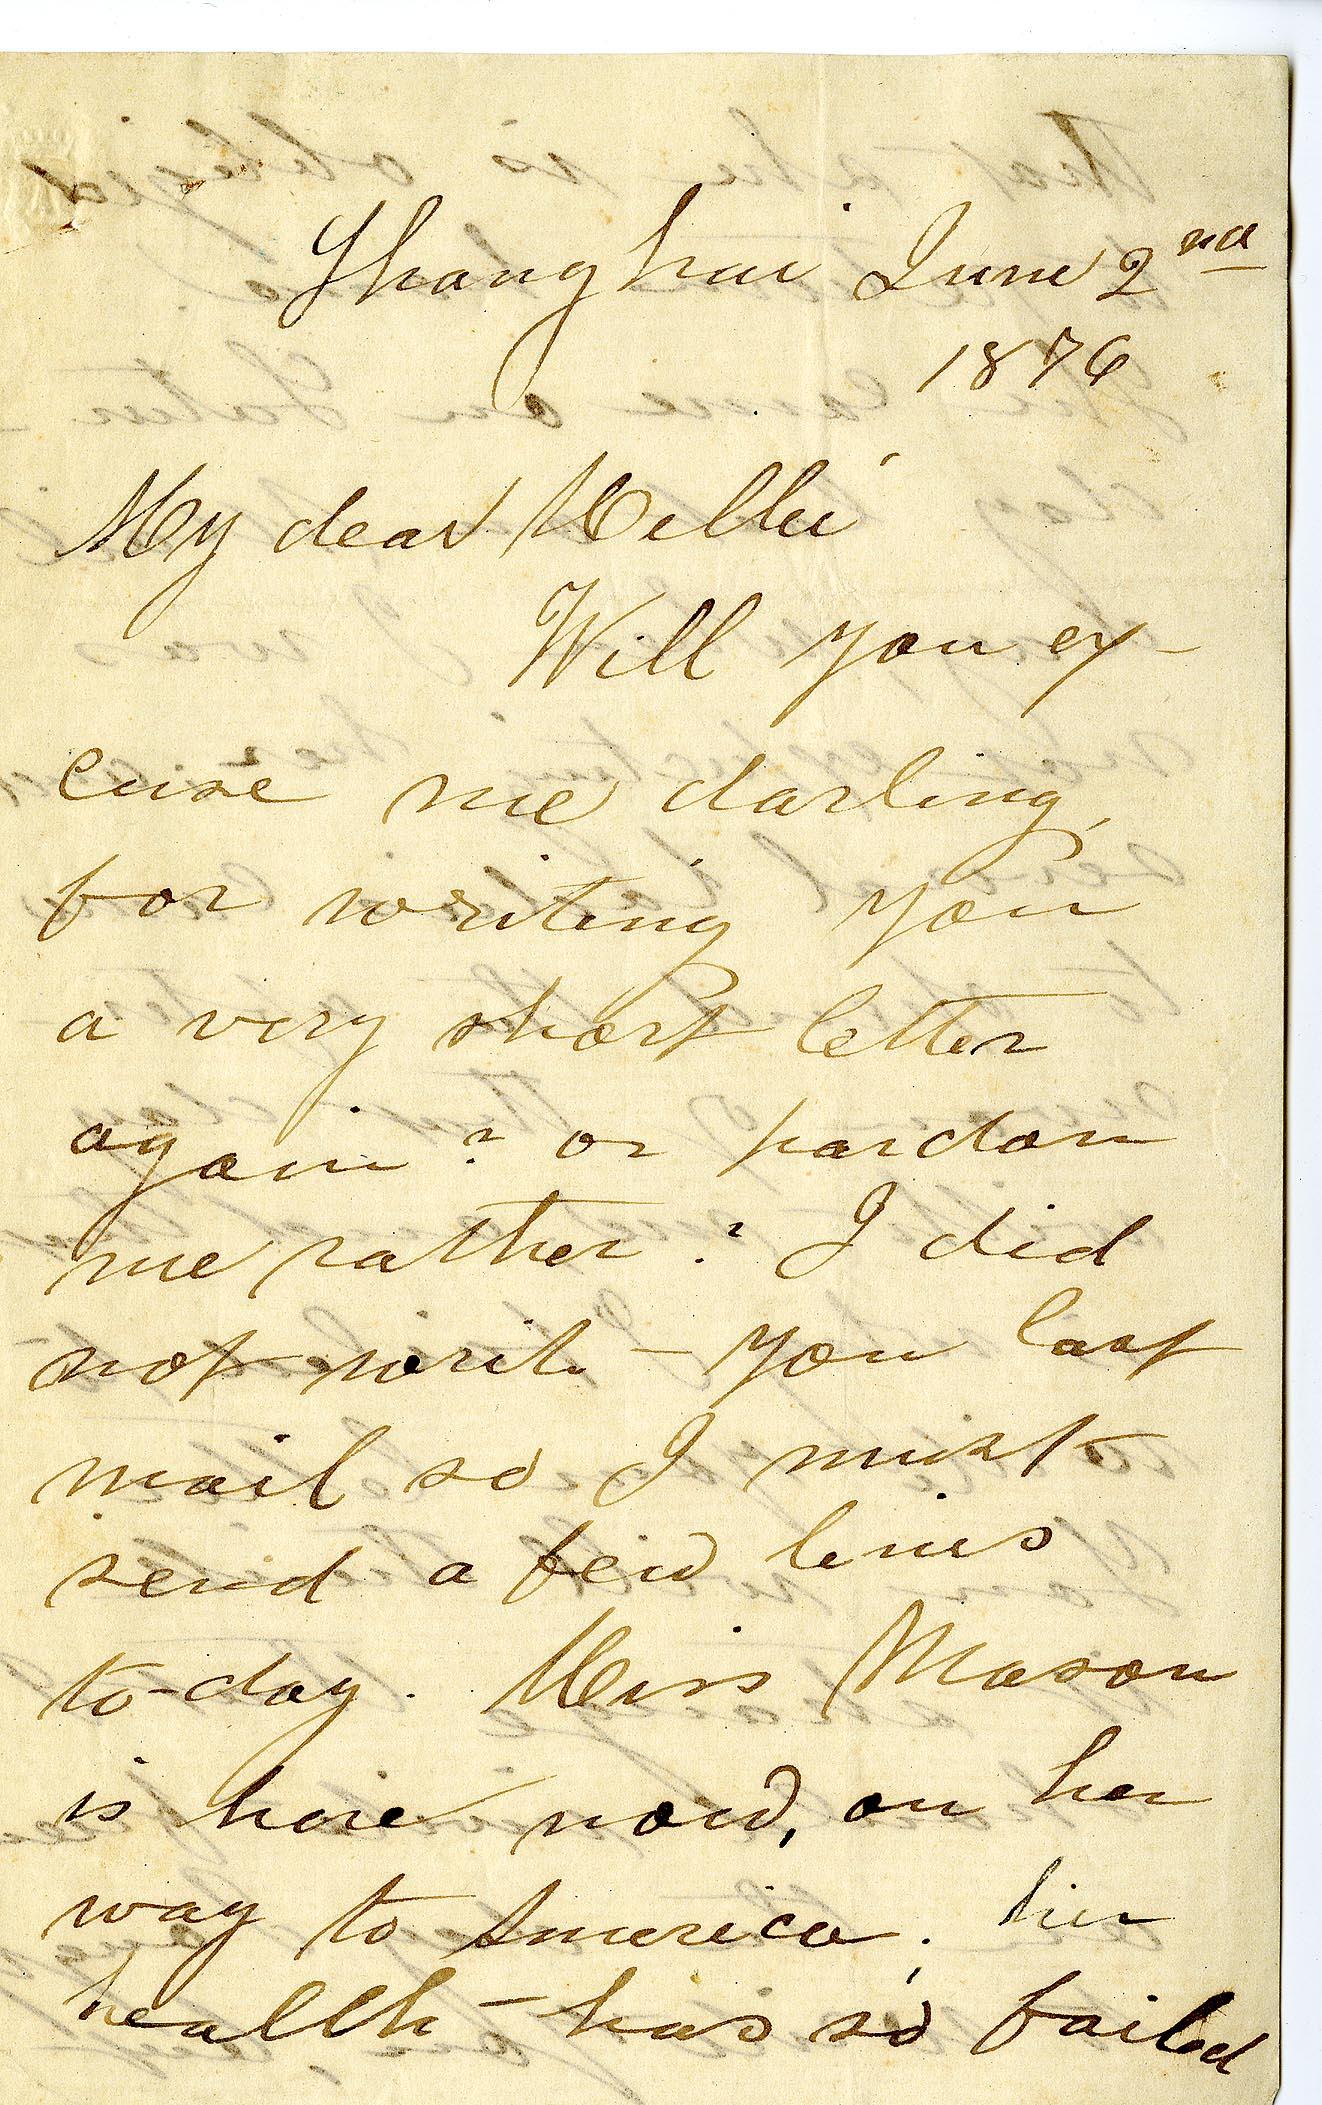 Shanghai June 2nd
1876
My dear Nellie
Will you ex-
cuse me darling,
for writing you
a very short letter
again? or pardon
me rather? I did
not write you last
mail so I must
send a few lines
to-day. Miss Mason
is here now, on her
way to America; her
health has so failed